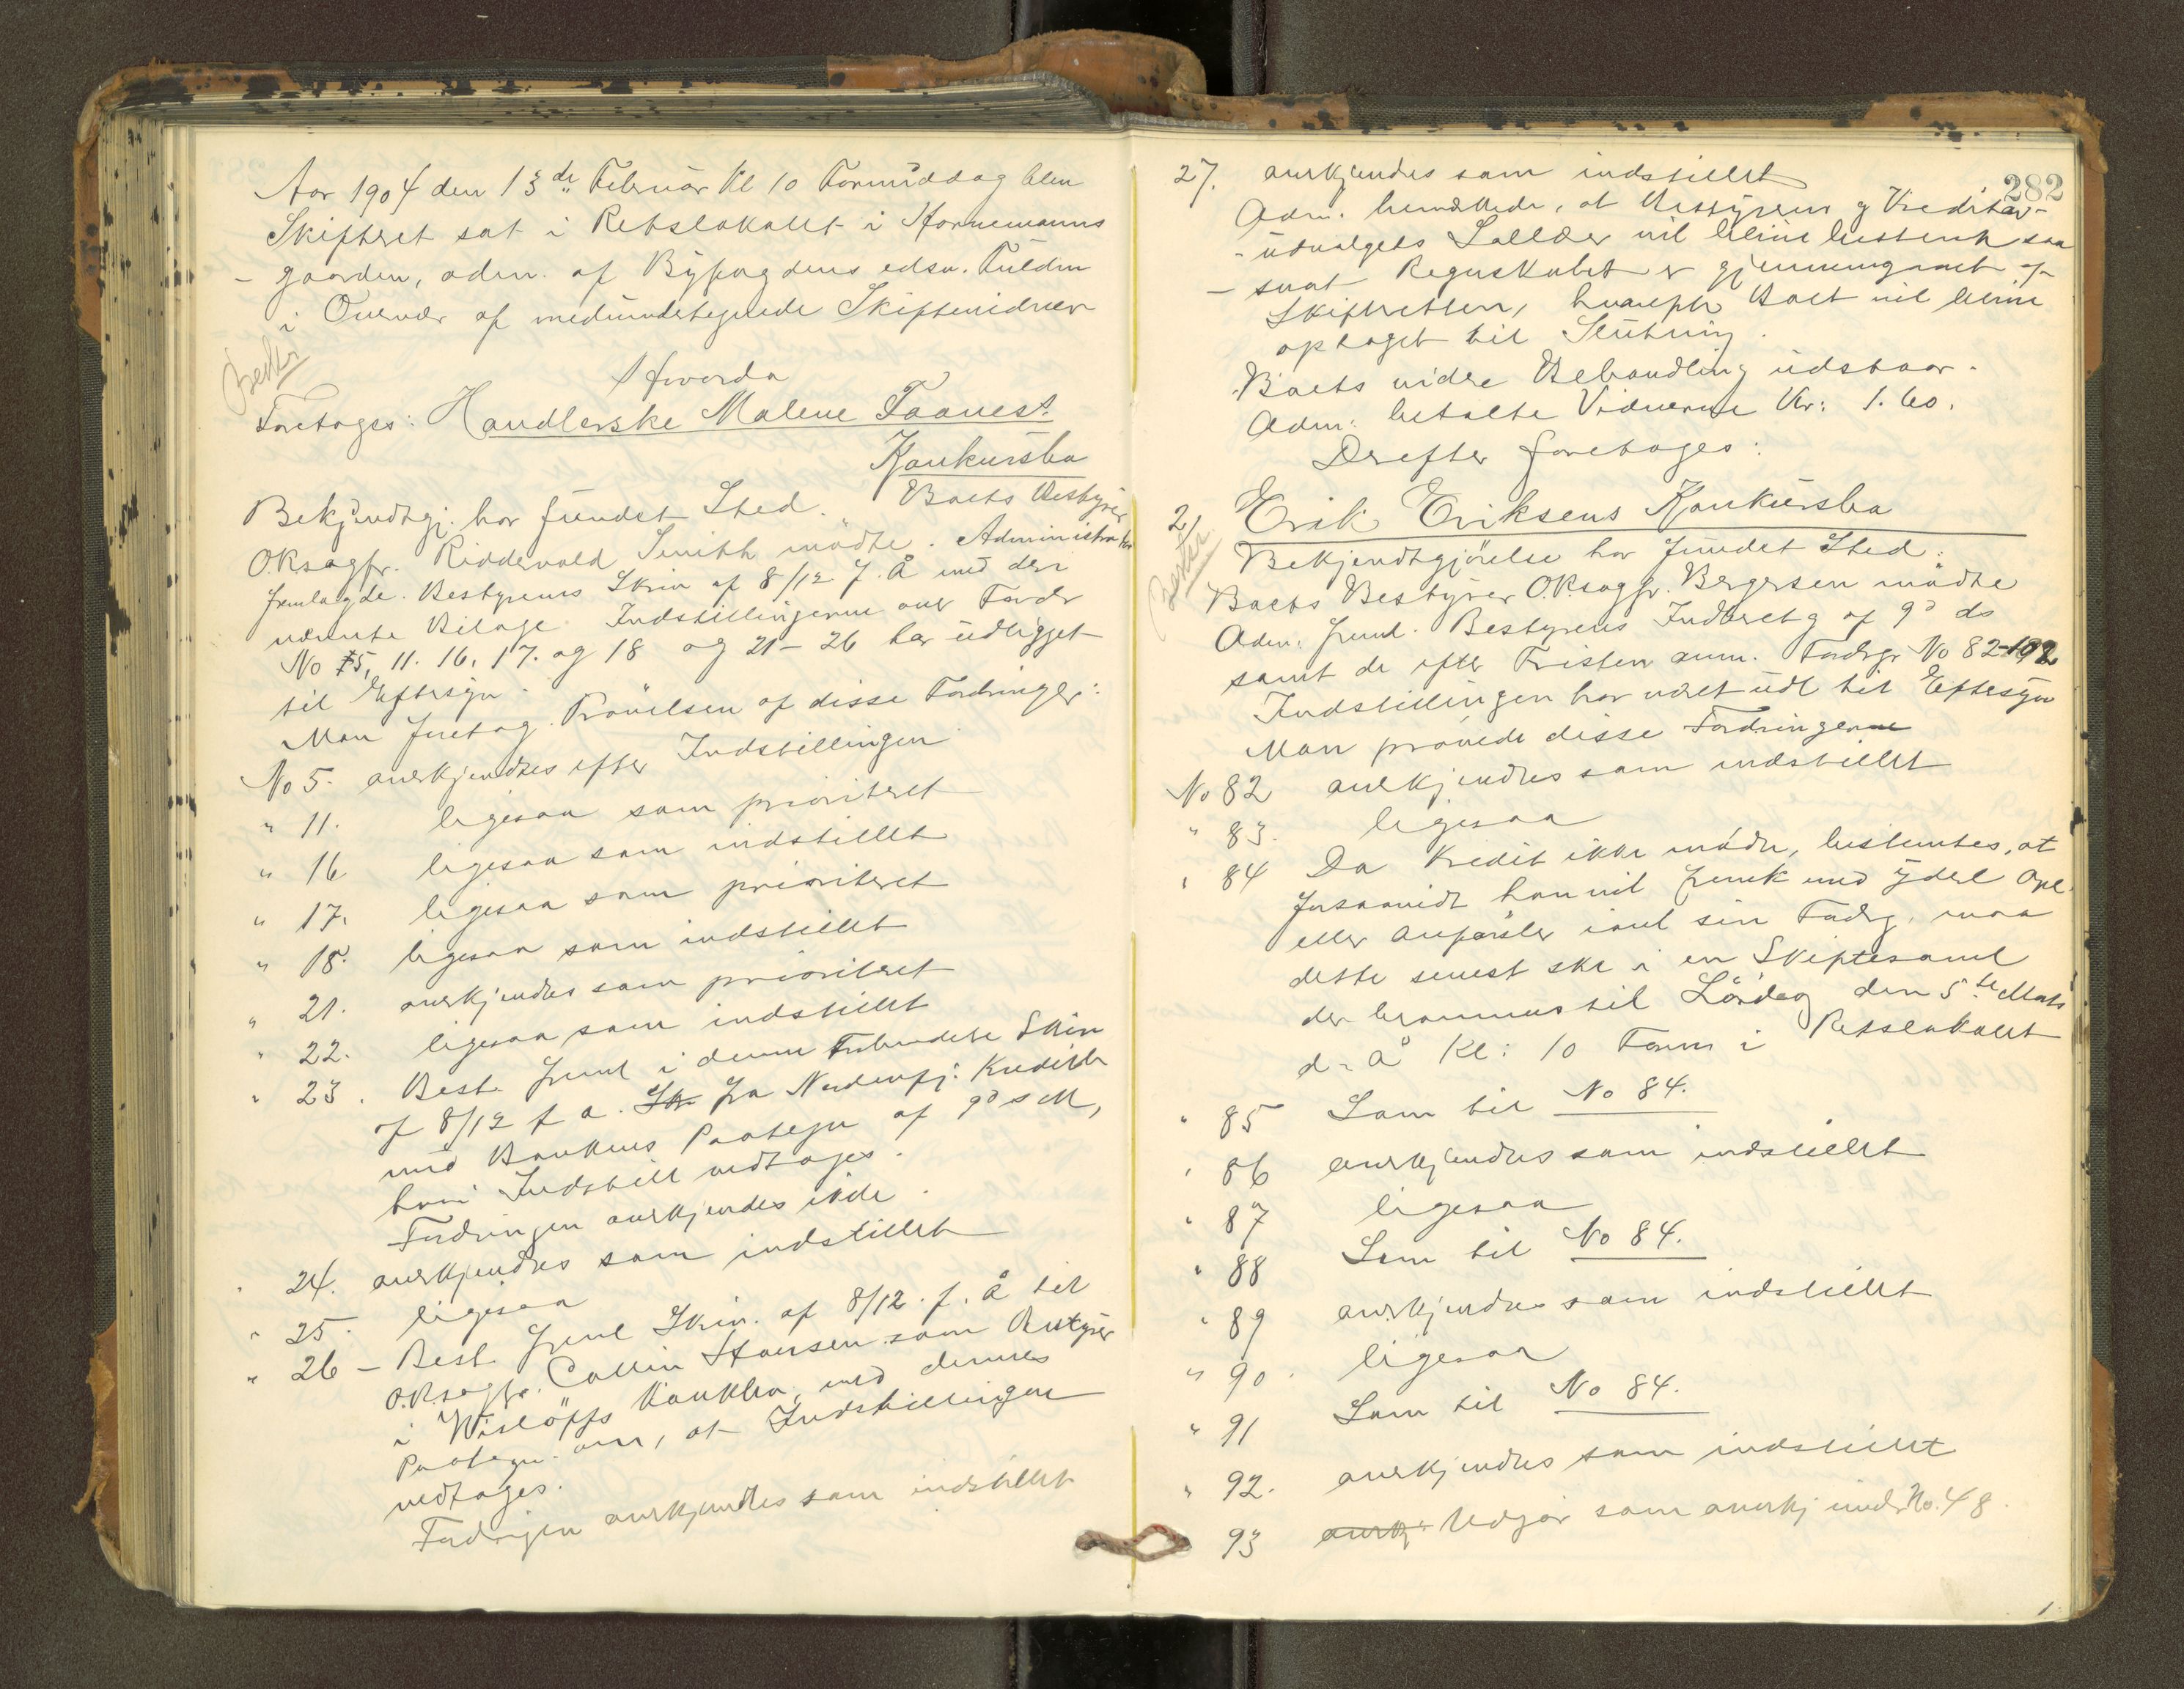 Aar 1904 den 13de Februar Kl 10 Formiddag blev
Skifteret sat i Retslokalet i Hornemanns
- gaarden, adm. af Byfogdens edsv. Fuldm
i Overvær af medundertegnede Skiftevidner
Hvorda
Foretages: Handlerske Malene Taanes's
Konkursbo
Bekjendtgj. har fundet Sted. Boets Bestyrer
O.Rsagfr. Riddervold Smith mødte. Administrator
fremlagde. Bestyrerens Skriv af 8/12 f. Å med deri
nævnte Bilage. Indstillingerne over Fordr
No 5, 11. 16, 17. og 18 og 21-26 har udligget
til Eftersyn.
Man foretog Prøvelsen af disse Fordringer:
No 5. anerkjendtes efter Indstillingen
" 11. ligesaa som prioriteret
" 16 ligesaa som indstillet
" 17. ligesaa som prioriteret
" 18. ligesaa som indstillet
" 21. anerkjendtes som prioriteret
" 22. ligesaa som indstillet
" 23. Best. freml i denne Forbindelse Skriv
af 8/12 f a. Skr fra Nordenfj. Kreditb
med Bankens Paategn af 9 ds M,
hvori Indstill vedtages.
Fordringen anerkjendes ikke.
" 24. anerkjendtes som indstillet
" 25. ligesaa
" 26 - Best. freml Skriv. af 8/12. f. Å til
O.Rsagfr. Collin Hansen som Bestyrer
i Wisløffs Konkbo, med dennes
Paategn. om, at Indstillingen
vedtages.
Fordringen anerkjendtes som indstillet
282
27. anerkjendes som indstillet
Adm. bemærkede, at Bestyrerens og Kreditor-
- udvalgets Sallær vil blive bestemt saa
- snart Regnskabet er gjennemgaaet af
Skifteretten, hvorefter Boet vil blive
optaget til Slutning.
Boets videre Behandling udstaar.
Adm: betalte Vidnerne Kr: 1.60.
Derefter foretages:
2/ Erik Eriksens Konkursbo
Bekjendtgjørelse har fundet Sted.
Boets Bestyrer O.Rsagfr. Bergersen mødte
Adm. freml. Bestyrerens Indberetg af 9d ds
samt de efter Fristen anm. Fordrgr No 82-102
Indstillingen har været udl til Eftersyn
Man prøvede disse Fordringer
No 82 anerkjendtes som indstillet
" 83. ligesaa
" 84 Da Kredit ikke mødte, bestemtes, at
forsaavidt han vil fremk med yderl Opl
eller Anførsler ianl sin Fordrg. maa
dette senest ske i en Skiftesaml
der berammes til Lørdag den 5te Marts
d. Å Kl: 10 Form i Retslokalet
" 85 Som til No 84.
" 86 anerkjendtes som indstillet
" 87 ligesaa
" 88 Som til No 84.
" 89 anerkjendtes som indstillet
" 90. ligesaa
" 91 Som til No 84.
" 92. anerkjendtes som indstillet
" 93 anerkj. Udgaar som anerkj under No. 48.